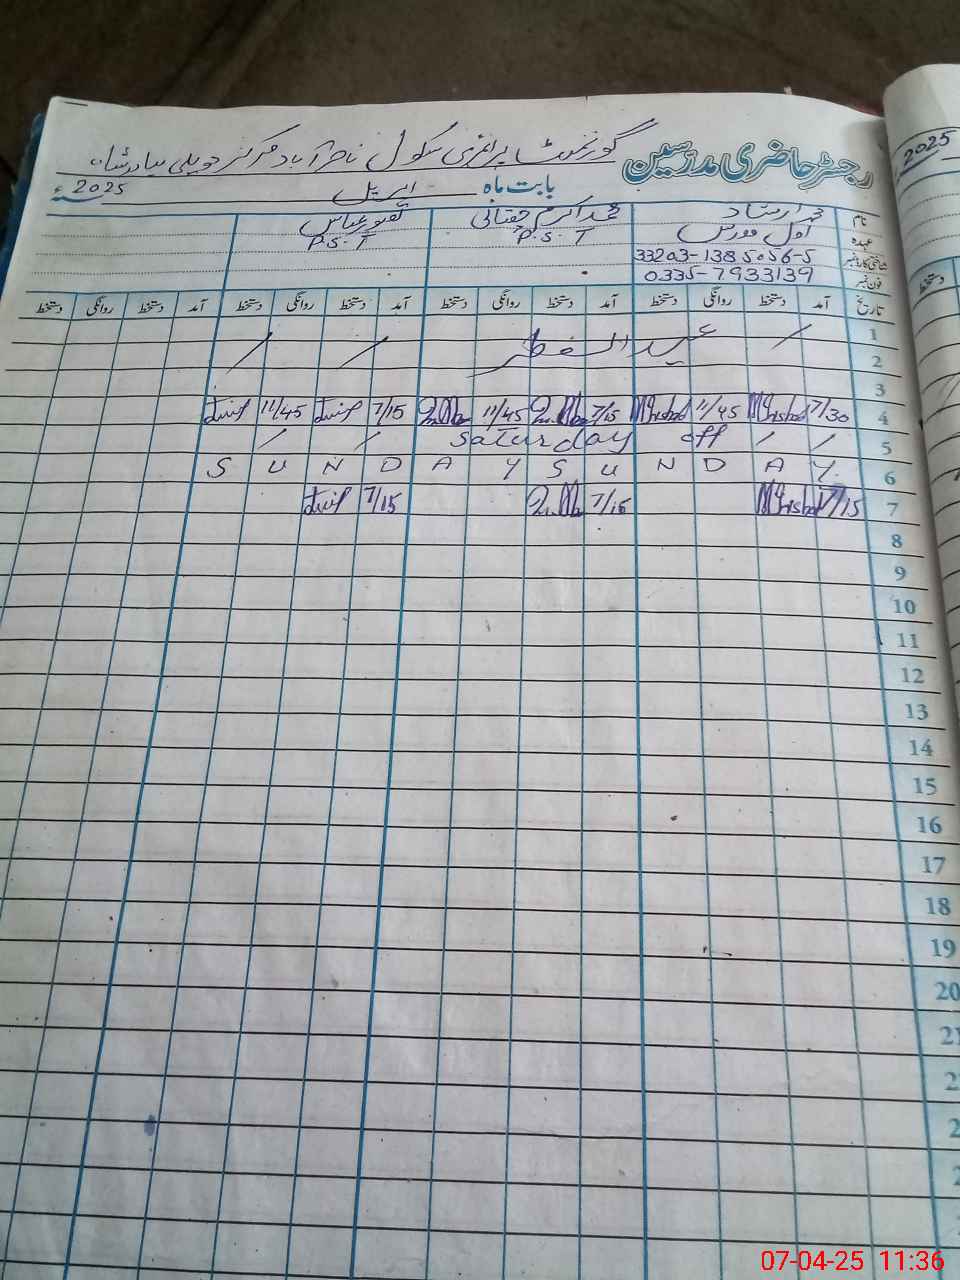 رجسٹر حاضری مدرسین گورنمنٹ پرائمری سکول ناصر آباد مرکز حویلی بہادر شاہ
بابت ماہ اپریل 2025ء
نام محمد ارشاد محمد اکرم چغتائی
عہدہ اول مدرس P.S.T P.S.T
شناختی کارڈ نمبر 33203-1385056-5
فون نمبر 0335-7933139
تاریخ آمد دستخط روانگی دستخط آمد دستخط روانگی دستخط آمد دستخط روانگی دستخط آمد دستخط روانگی دستخط
1
2 عید الفطر
3
4 7/30 M Irshad 11/45 M Irshad 7/15 11/45 7/15 11/45
5 Saturday off
6 S U N D A Y S U N D A Y
7 7/15 M Irshad 7/15 7/15
8
9
10
11
12
13
14
15
16
17
18
19
20
21
2025
07-04-25 11:36